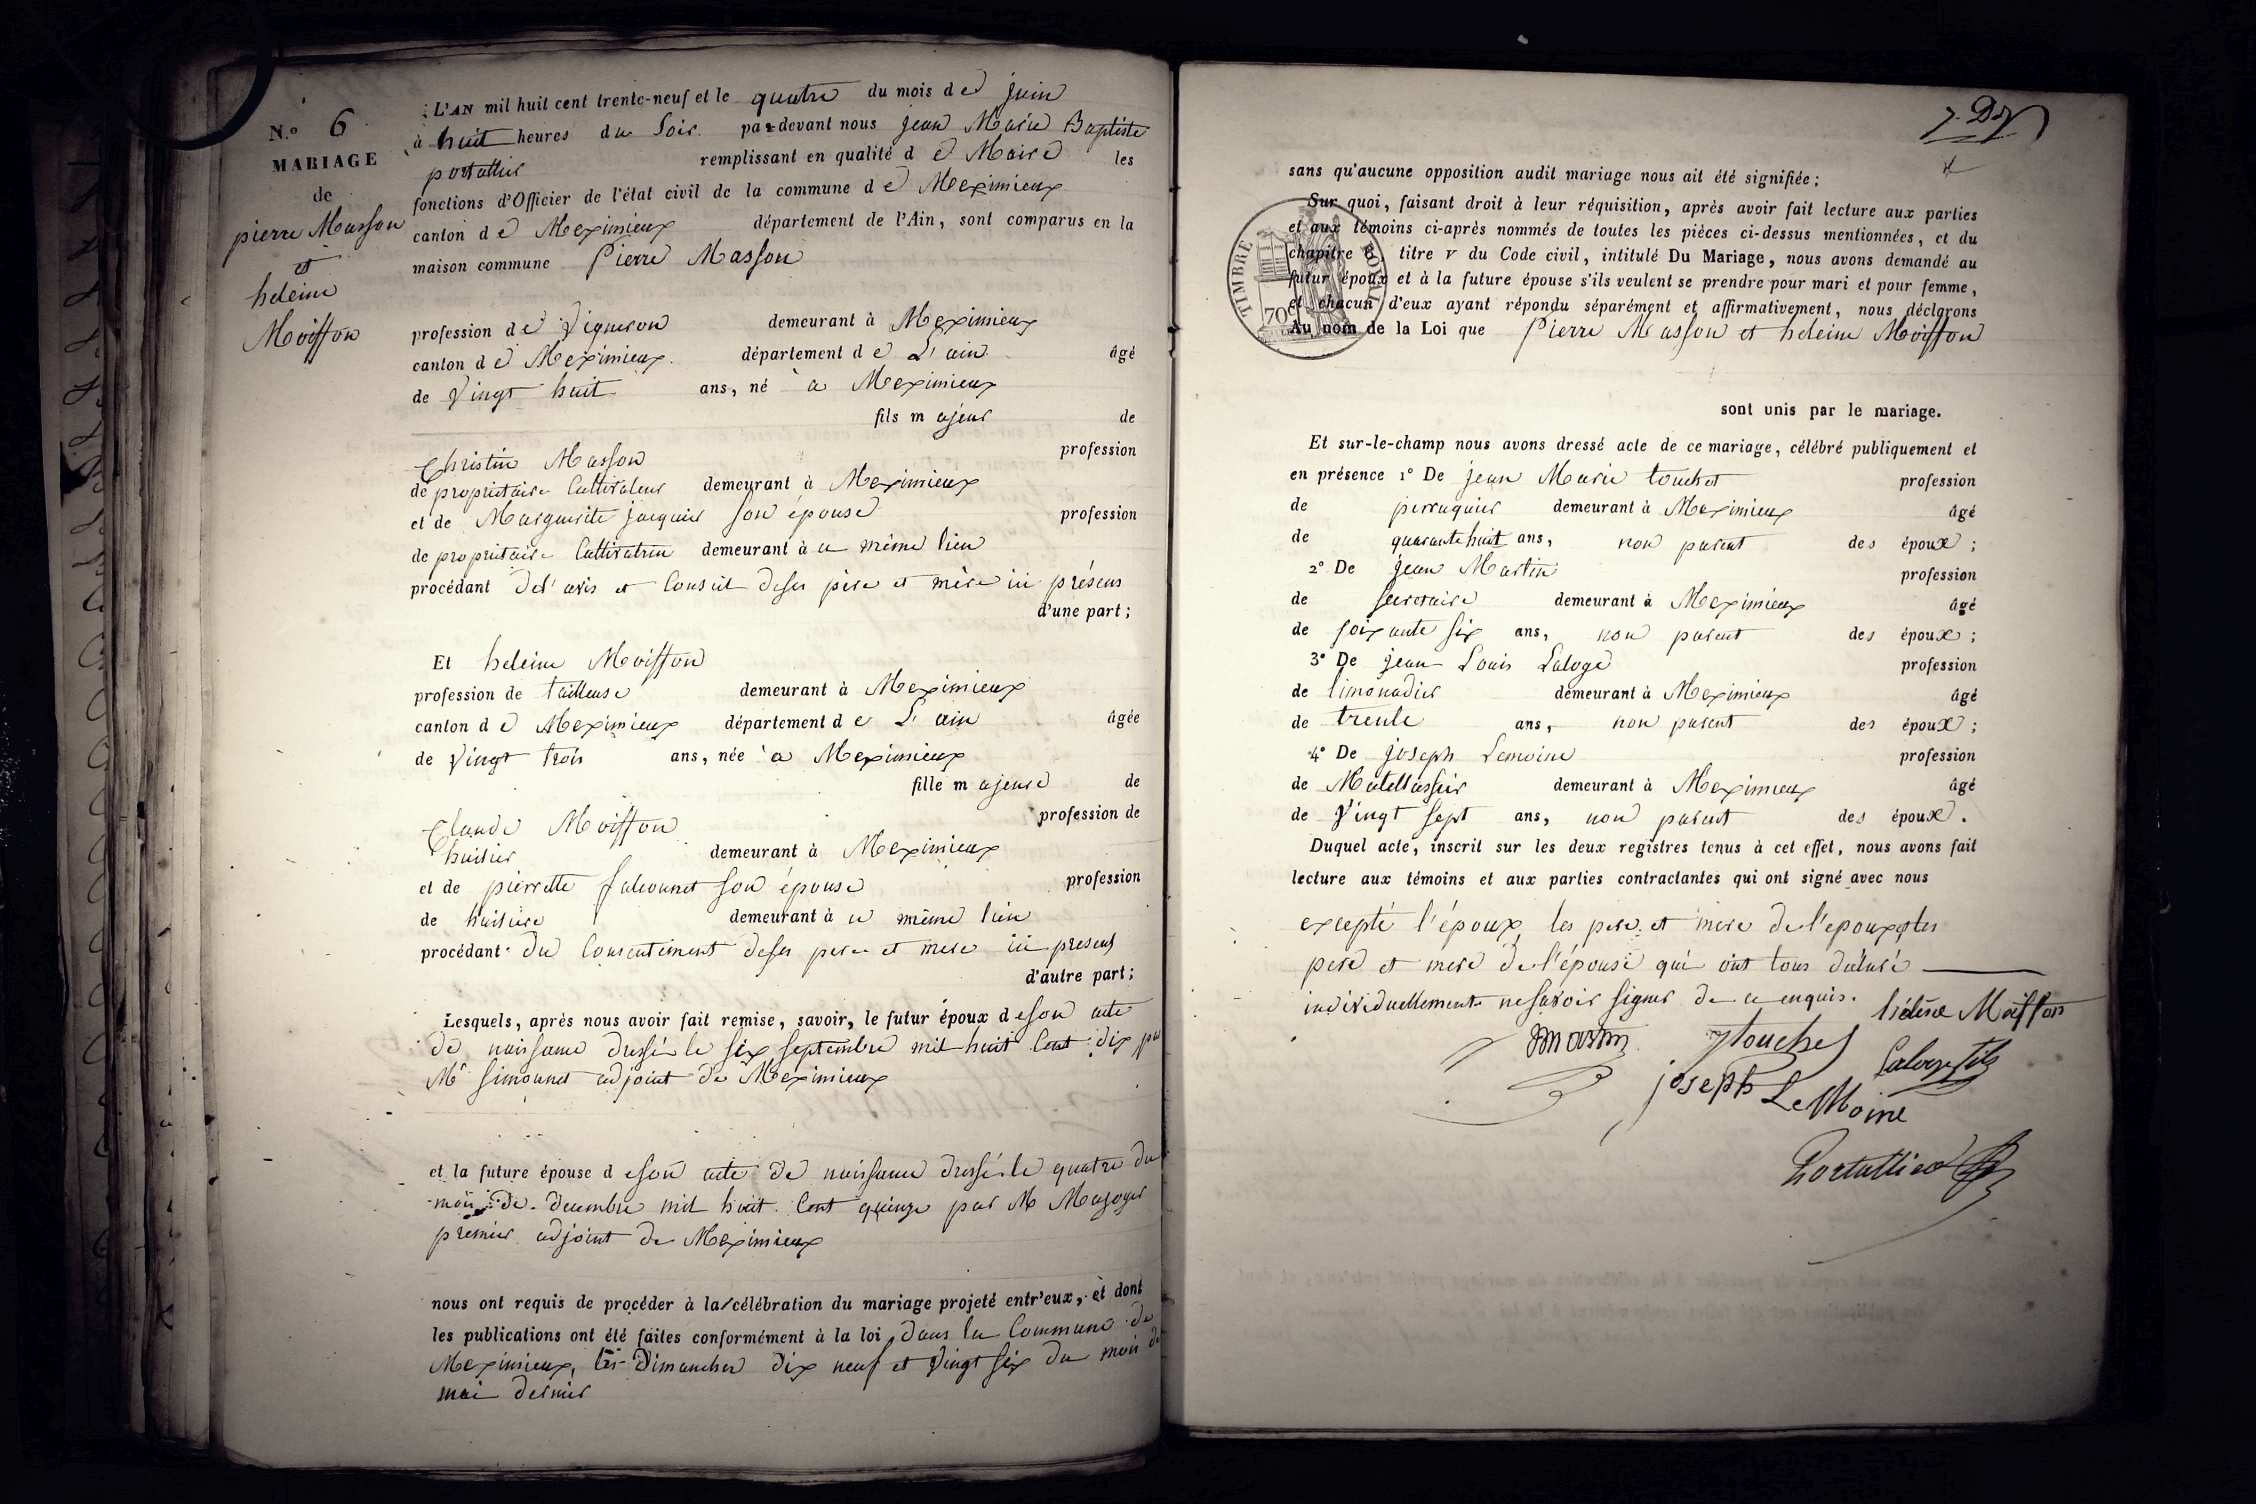 N.o 6
MARIAGE
de
pierre Masson
et
heleine
Moiffon
L'AN mil huit cent trente-neuf et le quatre du mois de juin
à huit heures du Soir par-devant nous jean Marie Baptiste
portallier remplissant en qualité de Maire les
fonctions d'Officier de l'état civil de la commune de Meximieux
canton de Meximieux département de l'Ain, sont comparus en la
maison commune Pierre Masson
profession de Vigneron demeurant à Meximieux
canton de Meximieux département de L'ain âgé
de Vingt huit ans, né à Meximieux
fils majeur de
Christin Masson profession
de proprietaire Cultivateur demeurant à Meximieux
et de Marguerite jacquier son épouse profession
de propriétaire Cultivatrice demeurant à u même lieu
procédant de l'avis et Conseil de ses père et mère ici présens
d'une part;
Et heleine Moiffon
profession de tailleuse demeurant à Meximieux
canton de Meximieux département de L'ain âgée
de Vingt trois ans, née à Meximieux
fille majeure de
Claude Moiffon profession de
huilier demeurant à Meximieux
et de pierrette falconnet son épouse profession
de huiliere demeurant à u même lieu
procédant du Consentement de ses pere et mere ici presens
d'autre part;
Lesquels, après nous avoir fait remise, savoir, le futur époux de son acte
de naissance dressé le six septembre mil huit Cent dix par
Mr Simonnet adjoint de Meximieux
et la future épouse de son acte de naissance dressé le quatre du
mois de decembre mil huit Cent quinze par M Mazoyer
premier adjoint de Meximieux
nous ont requis de procéder à la célébration du mariage projeté entr'eux, et dont
les publications ont été faites conformément à la loi Dans la Commune de
Meximieux, les Dimanches dix neuf et Vingt six du mois de
mai dernier
sans qu'aucune opposition audit mariage nous ait été signifiée;
Sur quoi, faisant droit à leur réquisition, après avoir fait lecture aux parties
et aux témoins ci-après nommés de toutes les pièces ci-dessus mentionnées, et du
chapitre 6, titre V du Code civil, intitulé Du Mariage, nous avons demandé au
futur époux et à la future épouse s'ils veulent se prendre pour mari et pour femme,
et chacun d'eux ayant répondu séparément et affirmativement, nous déclarons
Au nom de la Loi que Pierre Masson et heleine Moiffon
TIMBRE ROYAL
70c
sont unis par le mariage.
Et sur-le-champ nous avons dressé acte de ce mariage, célébré publiquement et
en présence 1° De jean Marie touchet profession
de perruquier demeurant à Meximieux âgé
de quarante huit ans, non parent des époux;
2° De jean Martin profession
de secretaire demeurant à Meximieux âgé
de soixante six ans, non parent des époux;
3° De jean Louis Laloge profession
de limonadier demeurant à Meximieux âgé
de trente ans, non parent des époux;
4° De joseph Lemoine profession
de Matellassier demeurant à Meximieux âgé
de Vingt sept ans, non parent des époux.
Duquel acte, inscrit sur les deux registres tenus à cet effet, nous avons fait
lecture aux témoins et aux parties contractantes qui ont signé avec nous
excepté l'époux, les pere et mere de l'epoux et les
pere et mere de l'épouse qui ont tous déclaré
individuellement ne savoir signer de ce enquis. hélène Moiffon
Jmartin Jtouchet
Laloge fils
joseph LeMoine
Portallier